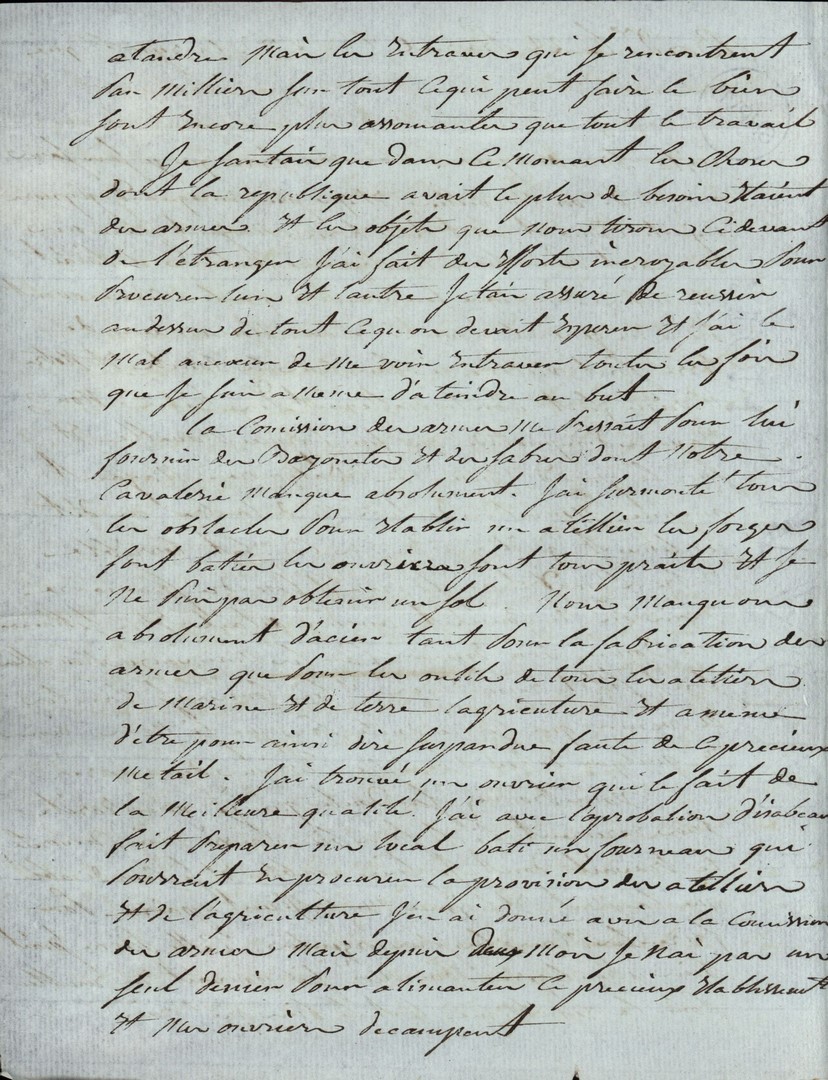 atandre mais les Entraves qui se rencontrent
par milliers sur tout ce qui peut faire le bien
sont Encore plus assomantes que tout le travail
Je santais que dans ce momant les choses
dont la republique avait le plus de besoin Etaient
des armes Et les objets que nous tirons cidevant
de l'étranger J'ai fait des Efforts incroyables pour
procurer lun Et lautre Jetais assuré de reussir
audessus de tout ce qu on devait Esperer Et J'ai le
mal de me voir Entraver toutes les fois
que Je suis a meme d'ateindre au but.
la Comission des armes me pressait pour lui
fournir des Bayonetes Et des sabres dont notre
Cavalerie manque absolument. J'ai surmonté tous
les obstacles pour Etablir un atellier les forges
sont baties les ouvriers sont tous praits Et Je
ne puis pas obtenir un sol. Nous manquons
absolument d'acier tant pour la fabrication des
armes que pour les outils de tous les ateliers
de marine Et de terre lagriculture Et a meme
d'etre pour ainsi dire suspandue faute de ce precieux
metail. J'ai trouvé un ouvrier qui le fait de
la meilleure qualité. J'ai avec l'aprobation d'isabeau
fait preparer un local bati un fourneau qui
pourrait En procurer la provision des atelliers
Et de l'agriculture J'en ai donné avis a la Comission
des armes mais depuis deux mois Je n'ai pas un
seul denier pour alimanter ce precieux Etablissemt
Et mes ouvriers decampent